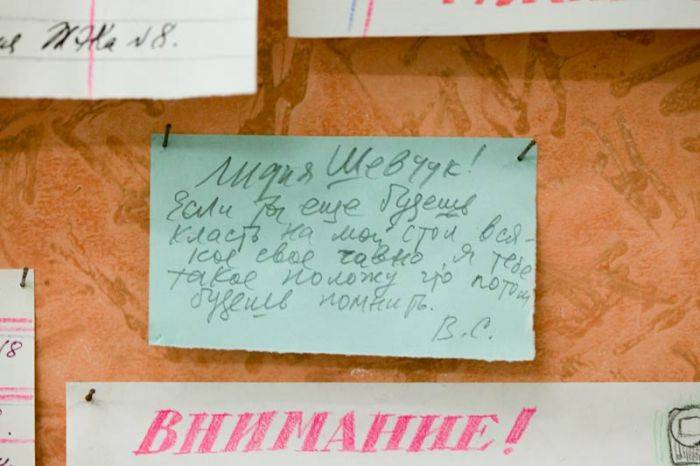 ЖЭКа №8.
Лидия Шевчук!
Если ты еще будешь
класть на мой стол вся-
кое свое гавно. Я тебе
такое положу что потом
будешь помнить.
В.С.
ВНИМАНИЕ!